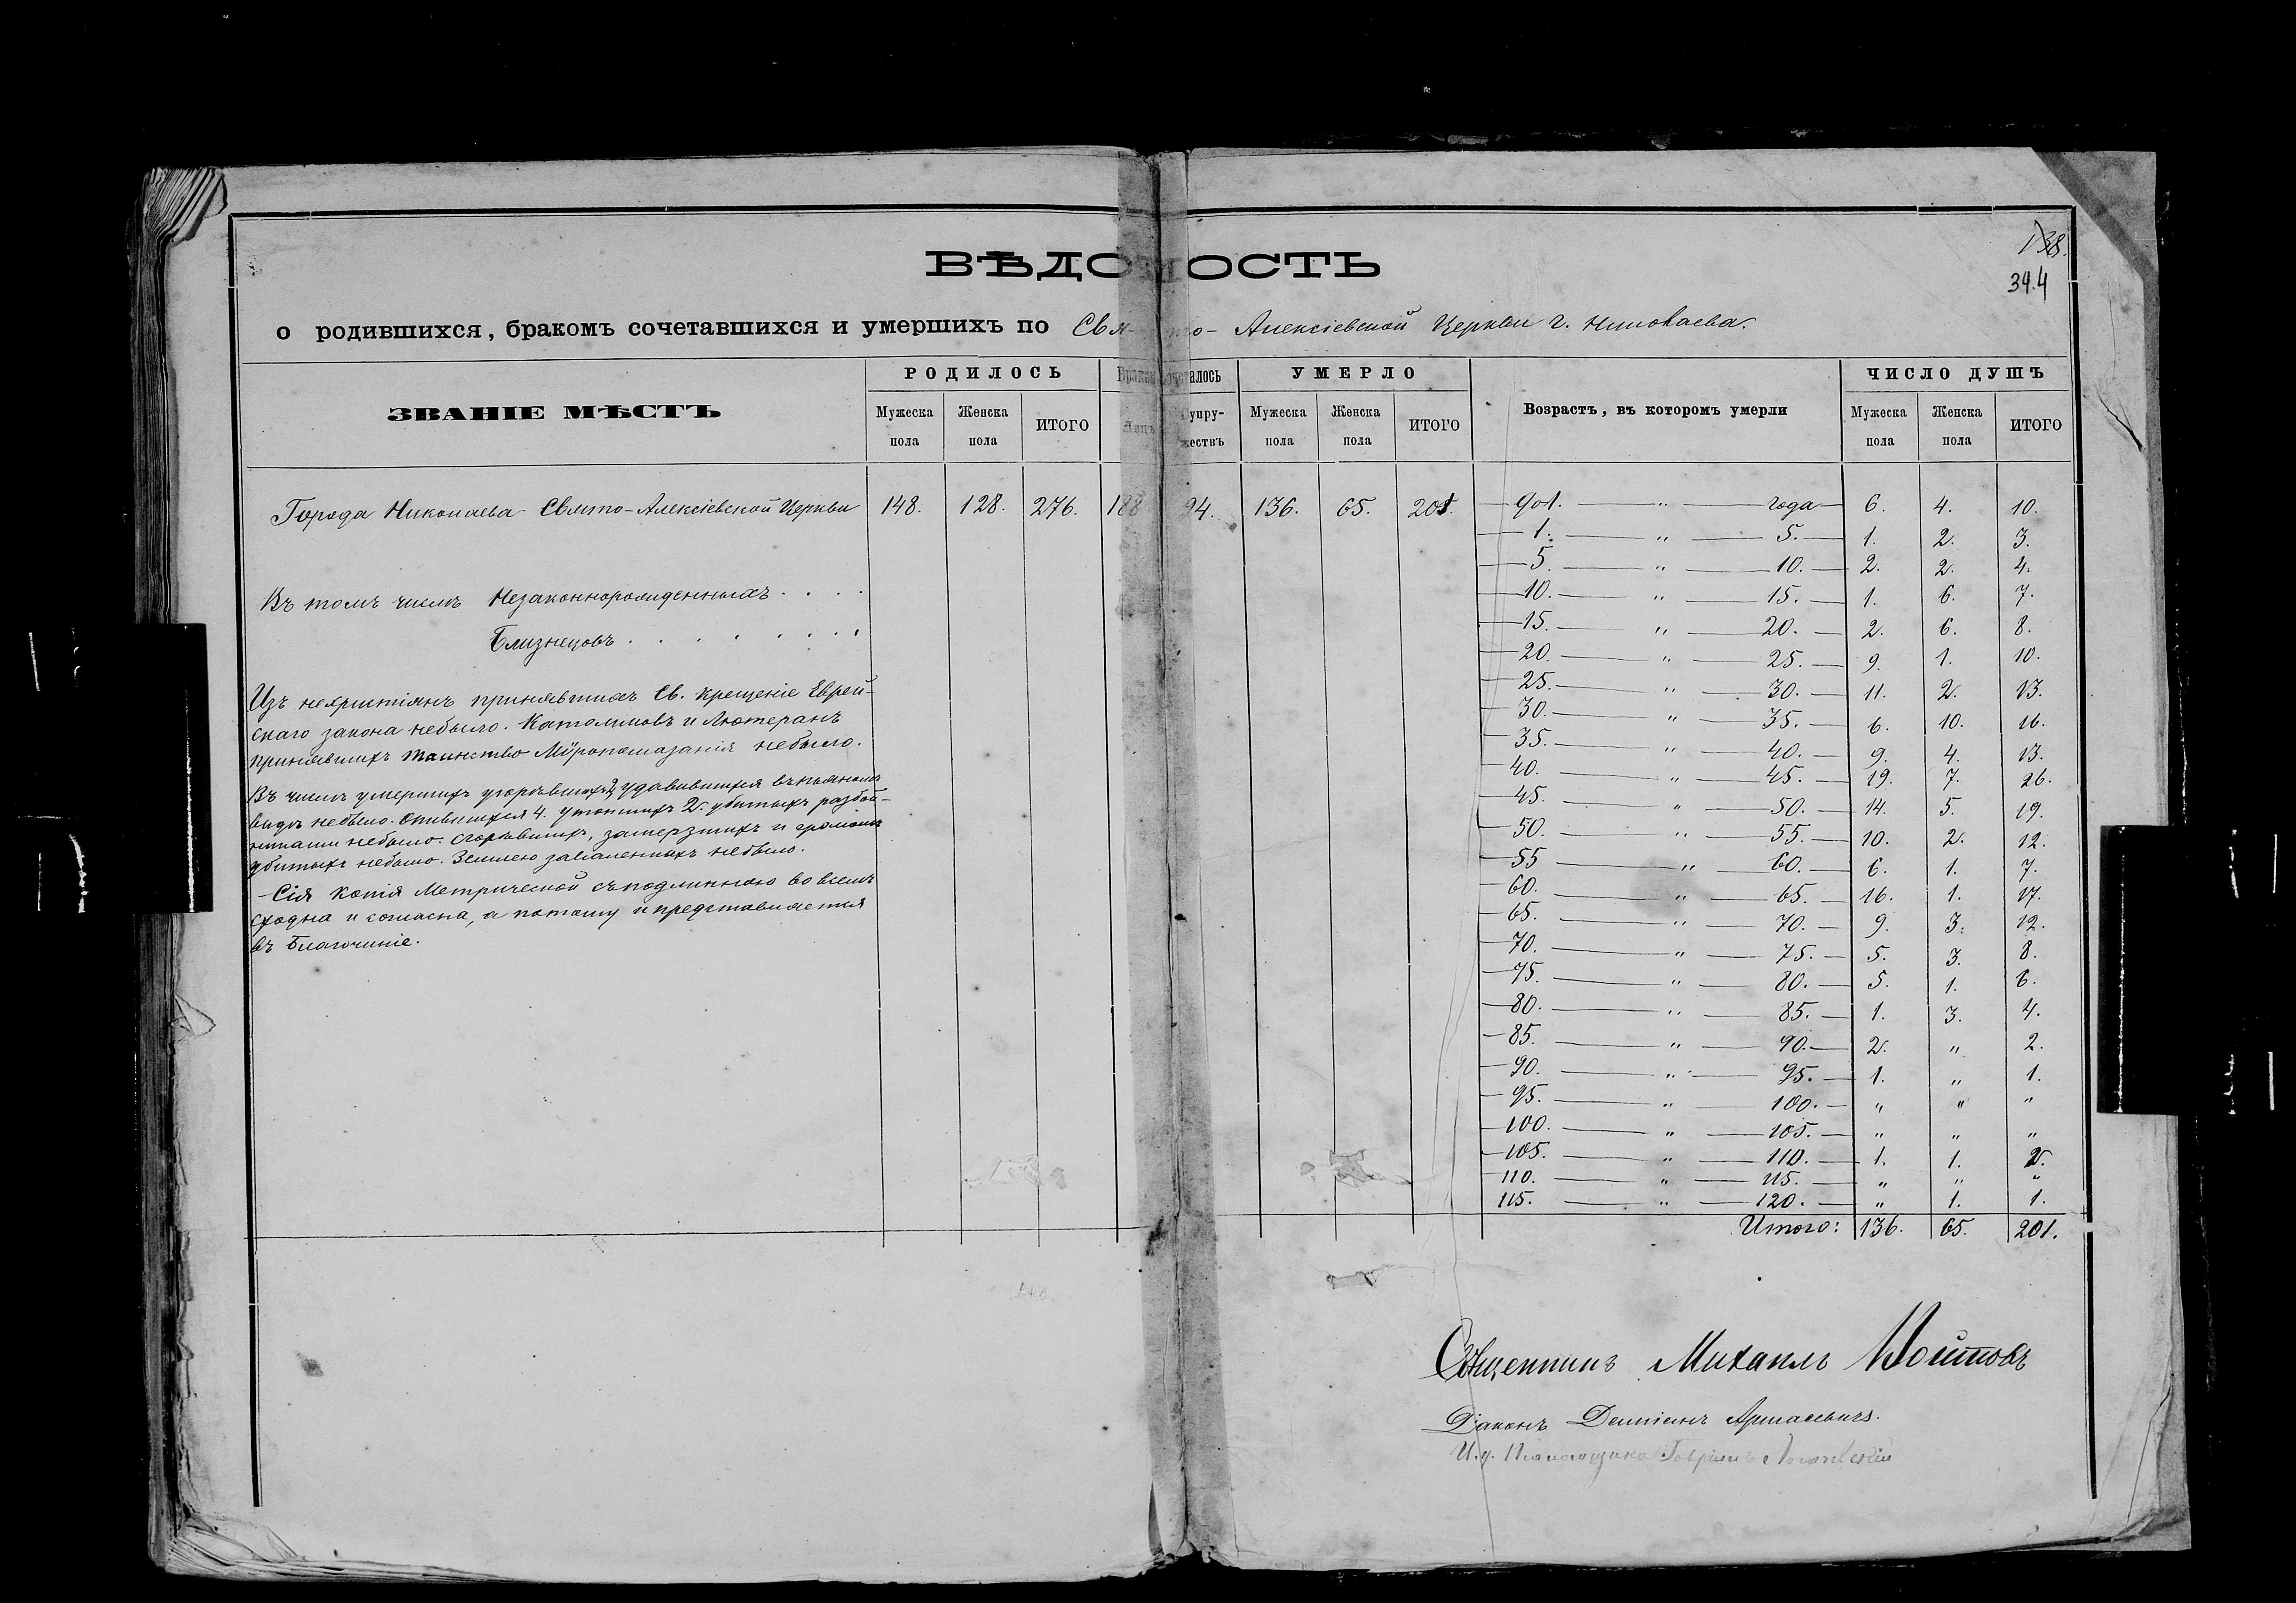 138.
344
ВѢДОМОСТЬ
о родившихся, бракомъ сочетавшихся и умершихъ по Свято-Алексіевской Церкви г. Николаева.
ЗВАНІЕ МѢСТЪ
РОДИЛОСЬ
Бракомъ сочеталось
УМЕРЛО
Возрастъ, въ которомъ умерли
ЧИСЛО ДУШЪ
Мужеска пола
Женска пола
ИТОГО
Лицъ
Супру-жествъ
Мужеска пола
Женска пола
ИТОГО
Мужеска пола
Женска пола
ИТОГО
Города Николаева Свято-Алексіевской Церкви 148. 128. 276. 188 94. 136. 65. 201.
Въ томъ числѣ Незаконнорожденныхъ . . . .
Близнецовъ . . . . . . . .
Изъ нехристіянъ принявшихъ Св. Крещеніе Еврей-
скаго закона небыло. Католиковъ и Лютеранъ
принявшихъ таинство Мѵропомазанія небыло.
Въ числѣ умершихъ угорѣвшихъ 2, удавившихся въ пьяномъ
видѣ небыло. Опившихся 4. утопшихъ 2. убитыхъ разбой-
никами небыло. Сгорѣвшихъ, замерзшихъ и громомъ
убитыхъ небыло. Землею заваленныхъ небыло.
- Сія копія Метрической съ подлинною во всемъ
сходна и согласна, а потому и представляется
въ Благочиніе.
до 1. " года 6. 4. 10.
1. " 5. 1. 2. 3.
5. " 10. 2. 2. 4.
10. " 15. 1. 6. 7.
15. " 20. 2. 6. 8.
20. " 25. 9. 1. 10.
25. " 30. 11. 2. 13.
30. " 35. 6. 10. 16.
35. " 40. 9. 4. 13.
40. " 45. 19. 7. 26.
45. " 50. 14. 5. 19.
50. " 55. 10. 2. 12.
55 " 60. 6. 1. 7.
60. " 65. 16. 1. 17.
65. " 70. 9. 3. 12.
70. " 75. 5. 3. 8.
75. " 80. 5. 1. 6.
80. " 85. 1. 3. 4.
85. " 90. 2. " 2.
90. " 95. 1. " 1.
95. " 100. " " "
100. " 105. " " "
105. " 110. 1. 1. 2.
110. " 115. " " "
115. " 120. " 1. 1.
Итого: 136. 65. 201.
Священникъ Михаилъ
Діаконъ Даміанъ
И. д. Псаломщика Гавріилъ